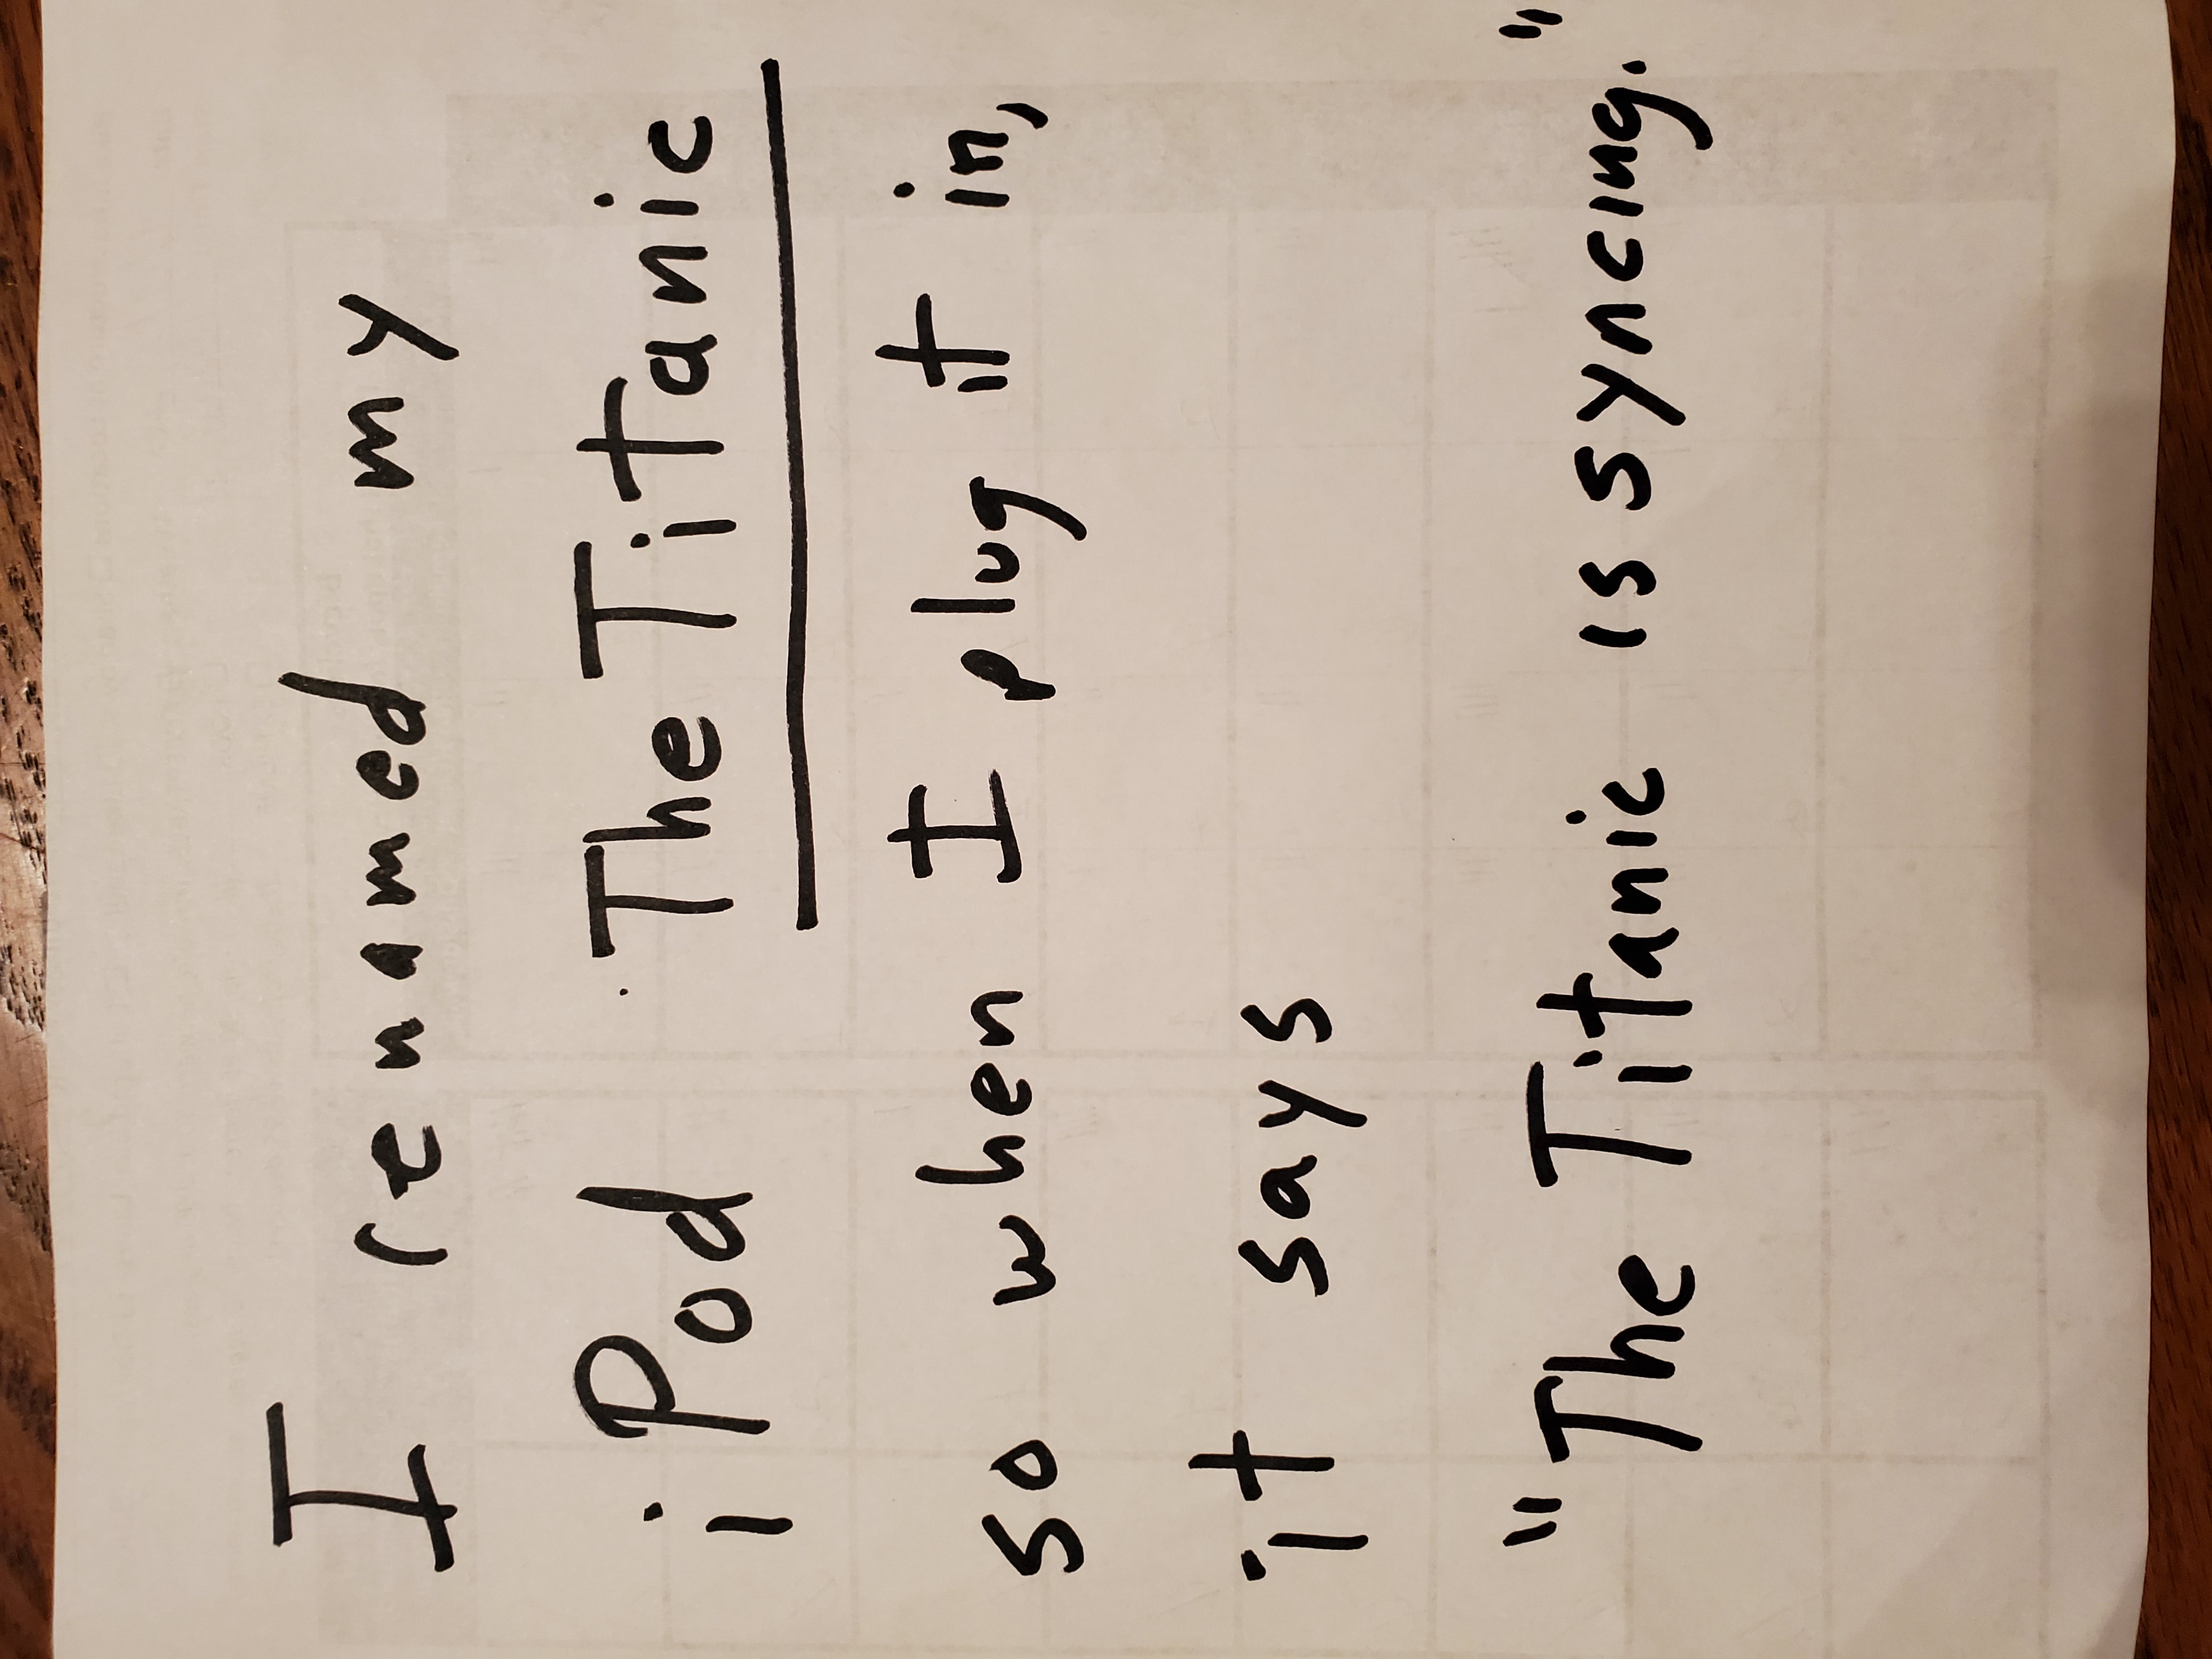 I renamed my
iPod The Titanic
so when I plug it in,
it says
"The Titanic is syncing."